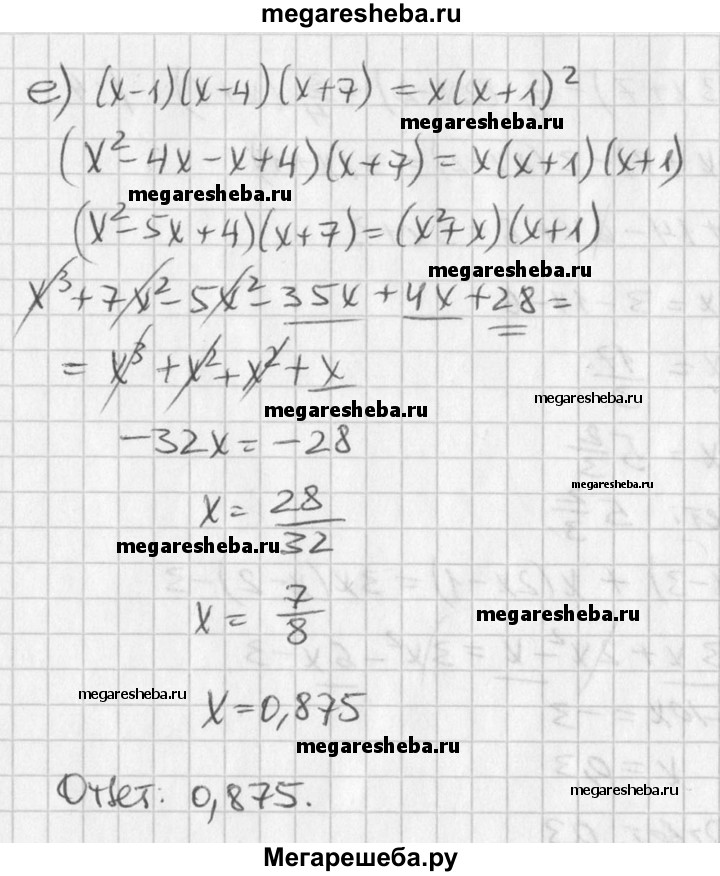 megaresheba.ru
е) (x-1)(x-4)(x+7) = x(x+1)²
megaresheba.ru
(x²-4x-x+4)(x+7) = x(x+1)(x+1)
megaresheba.ru
(x²-5x+4)(x+7) = (x²+x)(x+1)
megaresheba.ru
x³+7x²-5x²-35x+4x+28=
= x³+x²+x²+x
megaresheba.ru
megaresheba.ru
-32x = -28
megaresheba.ru
x = 28/32
megaresheba.ru
x = 7/8
megaresheba.ru
megaresheba.ru
x = 0,875
megaresheba.ru
Ответ: 0,875.
megaresheba.ru
Мегарешеба.ру